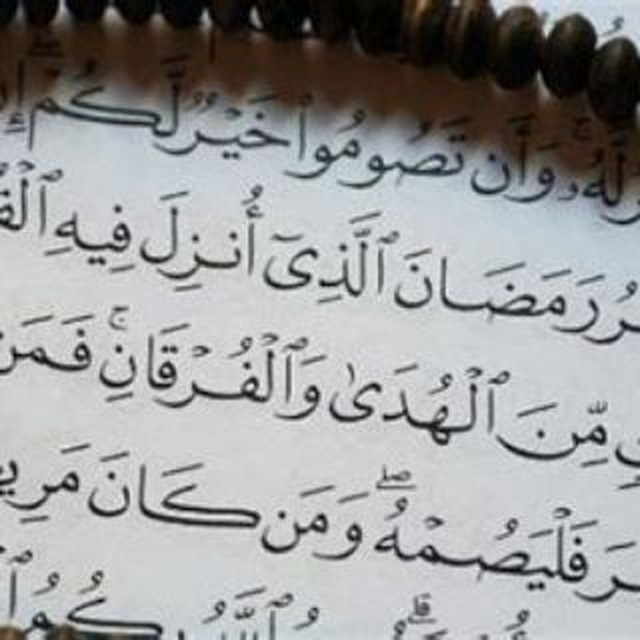 لَّهُۥ ۚ وَأَن تَصُومُوا۟ خَيْرٌ لَّكُمْ ۖ إِن
رُ رَمَضَانَ ٱلَّذِىٓ أُنزِلَ فِيهِ ٱلْقُ
مِّنَ ٱلْهُدَىٰ وَٱلْفُرْقَانِ ۚ فَمَن
رَ فَلْيَصُمْهُ ۖ وَمَن كَانَ مَرِي
ٱللَّهُ بِكُمُ ٱلْ